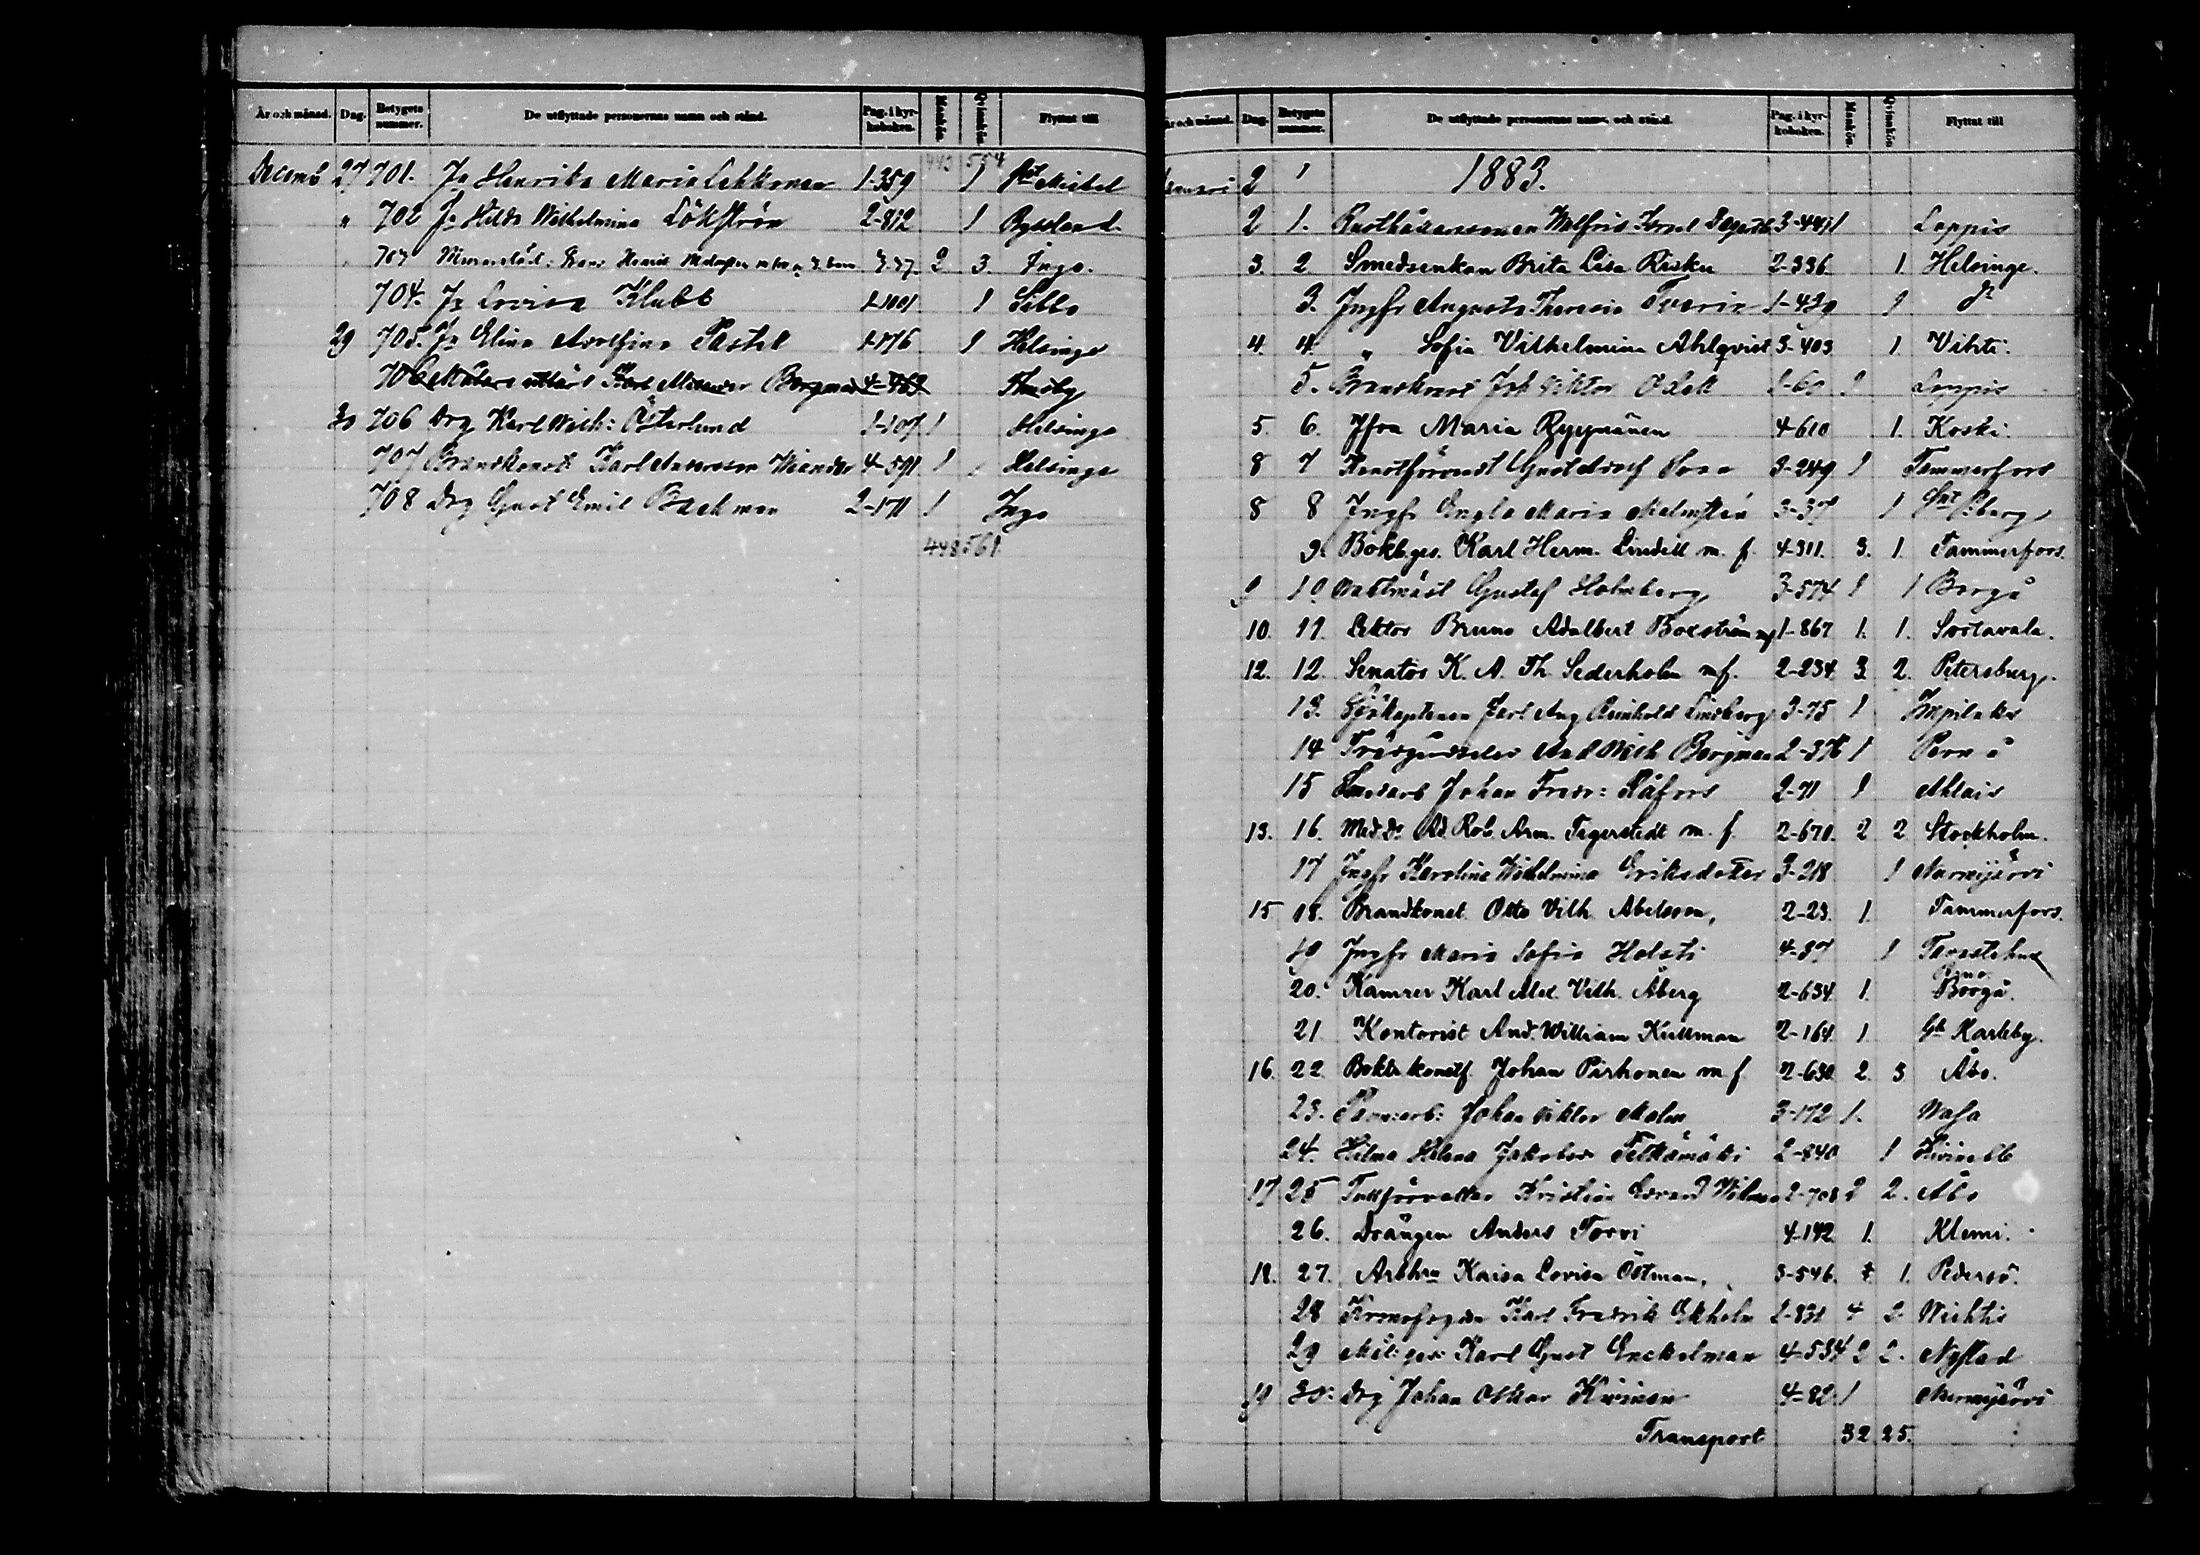 År och månad. Dag. Betygets nummer. De utflyttade personernas namn och stånd. Pag. i kyrkoboken. Mankön. Qvinkön. Flyttat till
443 554
Decemb 27 701. Ja Henrika Maria Lehkonen 1-359 1 St Michel
" 702 Ja Hilda Wilhelmina Lökström 2-812 1 Ryssland.
703 Henrik 3-37. 2 3 Ingo.
704. Ja Lovisa Klubb 1-1001 1 Sibbo
29 705. Ja Elina Adolfina Pastel 1-176 1 Helsinge
706 Karl Bergman 4-463
30 706 Drg Karl Wilh: Österlund 1-107 1 Helsinge
707 Karl Andersson Weander 4-591 1 Helsinge
708 Drg Gust Emil Backman 2-171 1 Ingo
448 561.
År och månad. Dag. Betygets nummer. De utflyttade personernas namn och stånd. Pag. i kyrkoboken. Mankön. Qvinkön. Flyttat till
Januari 2 1 1883.
2 1. Wolfrid 3-449 1 Loppis
3. 2 Smedsenkan Brita Lisa Risku 2-336 1. Helsinge.
3. Jngfr Augusta Theresia Tverin 1-439 1 do
4. 4. " Sofia Vilhelmina Ahlqvist 3-403 1 Vihti.
5. Joh Viktor Odell 1-60 1 Loppis
5. 6. Jfra Maria Ryynänen 4-610 1. Koski.
8 7 Gust Adolf 3-249 1 Tammerfors
8 8 Jngfr Engla Maria Malmstén 3-37 1 St Pburg
9. Bokb.ges. Karl Herm. Lindell m. f. 4-311. 3. 1. Tammerfors.
9 10 Gustaf Holmberg 3-574 1 1 Borgå
10. 11. Lektor Bruno Adalbert Boxström 1-867 1. 1. Sortavala.
12. 12. Senator K. A. Th. Sederholm mf. 2-234 3 2. Petersburg.
13. Sjökaptenen Karl Aug Reinhold Lindberg 3-75 1 Impilaks
14 And Wilh Bergman 2-376 1 Pernå
15 Johan Fredr: Råfors 2-71 1 Ahlais
13. 16. Med.Dr Ad. Rob. Arm. Tigerstedt m. f. 2-670. 2 2 Stockholm.
17 Jngfr Karolina Wilhelmina Eriksdotter 3-218 1 Nurmijärvi
15 18. Brandkonst. Otto Vilh. Abelsson, 2-23. 1. Tammerfors.
19 Jngfr Maria Sofia Holsti 4-37 1 Tavastehus
20. Kamrer Karl Alex. Vilh. Åberg 2-654 1. Borgå.
21 Kontorist And. William Kullman 2-164 1. Gk Karleby.
16. 22 Johan Pärhonen m f 2-630 2. 3 Åbo.
23. Johan Viktor Malm 3-172 1. Wasa
24. Hilma Helena Jakobsdr 2-840 1 Hvinebb
17 25 Tullförvalter Kristian Edvard 2-708 2 2. Åbo
26. Drängen Anders Torvi 4-142 1. Klemi.
18. 27. Kaisa Lovisa Östman, 3-546. 1. Pedersö.
28 Kronofogden Karl Fredrik Ekholm 2-831 4 2 Wichtis
29 Karl Gust Enckelman 4-534 2 2. Nystad
19 30. Drg Johan Oskar Kivinen 4-82 1 Nurmijärvi
Transport 32 25.